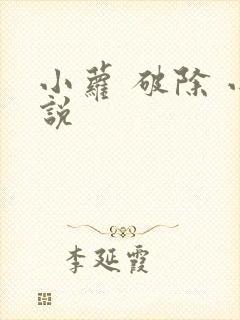 小蘿 破除 小
說
李延霞